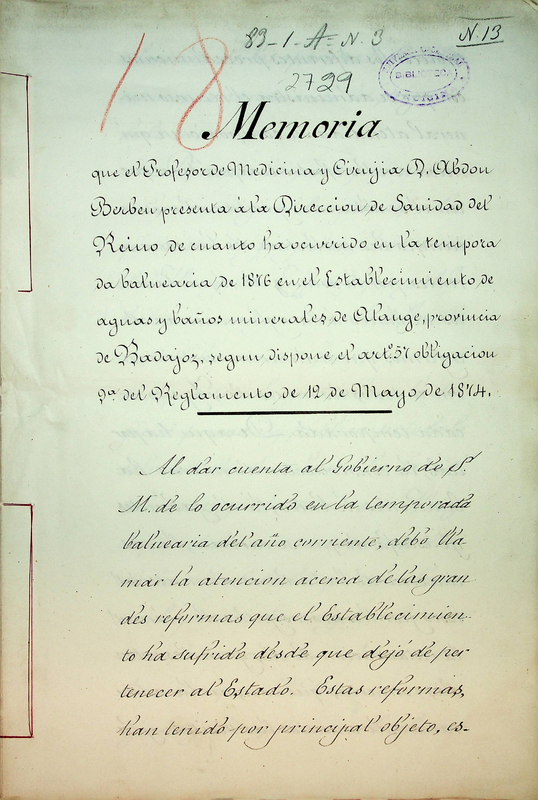 83-1-A-N. 3
N. 13
18
2729
BIBLIOTECA
Memoria
que el Profesor de Medicina y Cirujia D. Abdon
Berben presenta á la Direccion de Sanidad del
Reino de cuánto ha ocurrido en la tempora
da balnearia de 1876 en el Establecimiento de
aguas y baños minerales de Alange, provincia
de Badajoz, segun dispone el artº. 57 obligacion
9ª del Reglamento de 12 de Mayo de 1874.
Al dar cuenta al Gobierno de S.
M. de lo ocurrido en la temporada
balnearia del año corriente, debo lla
mar la atencion acerca de las gran
des reformas que el Establecimien-
to ha sufrido desde que dejó de per
tenecer al Estado. Estas reformas,
han tenido por principal objeto, es-